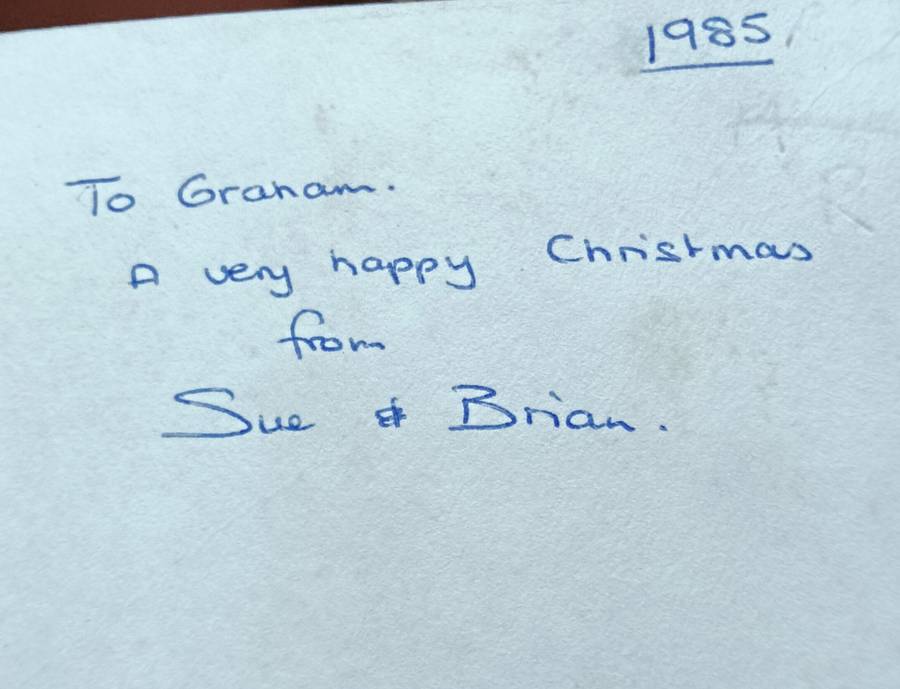 1985
To Graham.
A very happy Christmas
from
Sue & Brian.